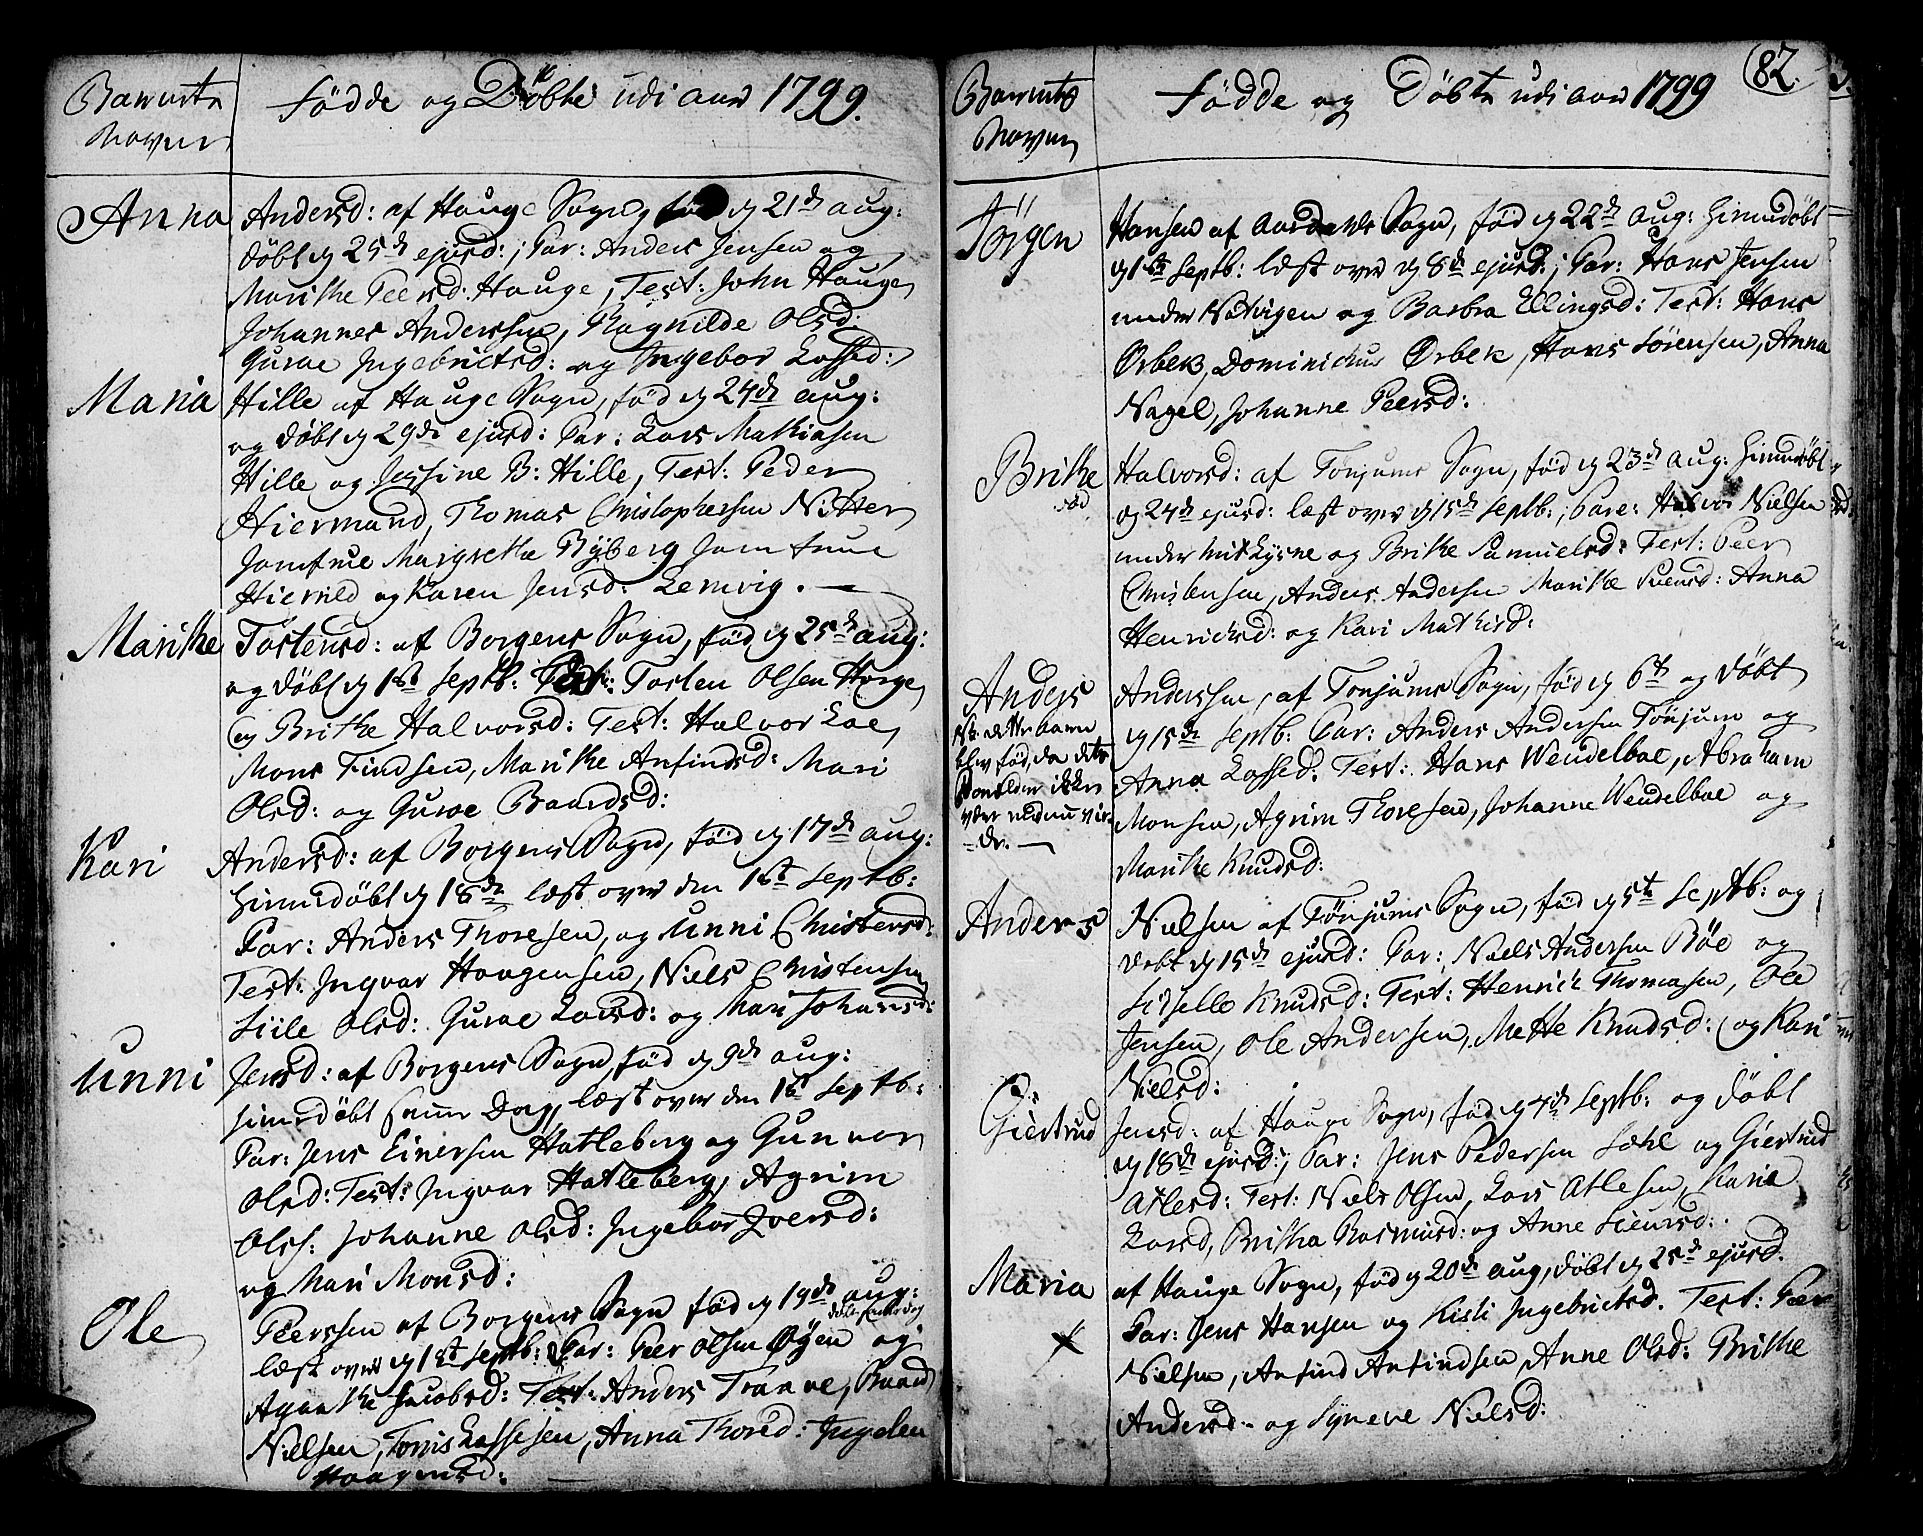 Barnets
Navn
Födde og Döbte udi aar 1799.
Anna
Andersd: af Hauge Sogn, föd d 21de aug:
döbt d 25de ejusd:; Par: Anders Jensen og
Marithe Peersd: Hauge, Test: John Hauge
Johannes Anderssen, Ragnilde Olsd:
Guroe Ingebrictsd: og Ingebor Lassed:
Maria
Hille af Hauge Sogn, föd d 24de aug:
og döbt d 29de ejusd: Par: Lars Mathiasen
Hille og Jessine B: Hille, Test: Peder
Hiermand, Thomas Christophersen Nitter
Jomfrue Margrethe Ryberg Jomfrue
Hiermild og Karen Jensd: Lemvig. —
Marithe
Tostensd: af Borgens Sogn, föd d 25de aug:
og döbt d 1st Septb: Tosten Olsen Horge
og Brithe Halvorsd: Test: Halvor Loe,
Mons Findsen, Marithe Anfindsd: Mari
Olsd: og Guroe Baardsd:
Kari
Andersd: af Borgens Sogn, föd d 17de aug:
hiemedöbt d 18de læst over den 1st Septb:
Par: Anders Thoresen, og Unni Christensd:
Test: Ingvar Haagensen, Niels Christensen
Siile Olsd: Guroe Larsd: og Mari Johansd:
Unni
Jensd: af Borgens Sogn, föd d 9de aug:
hiemedöbt samme Dag, læst over den 1st Septb:
Par: Jens Einersen Hatleberg og Gunvor
Olsd: Test: Ingvar Hatleberg, Agrim
Ols: Johanne Olsd: Ingebor Iversd:
og Mari Monsd:
Ole
Peerssen af Borgens Sogn föd d 19de aug:
læst over d 1st Septb: Par: Peer Olsen Øyen og
Agathe Jacobsd: Test: Anders Trønne, Baard
Nielsen, Tonis Lassesen, Anna Thored: Ingelen
Haagensd:
Barnets
Navn
Födde og Döbte udi aar 1799
82.
Jörgen
Hansen af Aardahls Sogn, föd d 22de aug: hiemedöbt
d 1st Septb: læst over d 8de ejusd:; Par: Hans Jensen
under Natvigen og Barbra Ellingsd: Test: Hans
Ørbek, Dominichus Ørbek, Hans Sörensen, Anna
Nagel, Johanne Peersd:
Brithe
Halvorsd: af Tonjums Sogn, föd d 23de aug: hiemedöbt
d 24de ejusd: læst over d 15de Septb:; Pare: Halvor Nielsen
under og Brithe Samuelsd: Test: Peer
Christensen, Anders Andersen Marithe Svensd: Anna
Henrichsd: og Kari Mathisd:
Anders
Nb: dette barn
blev föd, da dets
Forældre ikke
vare endnu vie-
de. —
Anderssen, af Tonjums Sogn, föd d 6te og döbt
d 15de Septb: Par: Anders Andersen Tönjum og
Anna Lassed: Test: Hans Wendelboe, Abraham
Monsen, Agrim Thoresen, Johanne Wendelboe og
Marithe Knudsd:
Anders
Nielsen af Tönjums Sogn, föd d 5te Septb: og
döbt d 15de ejusd: Par: Niels Andersen Böe og
Sidselle Knudsd: Test: Henrich Thomassen, Ole
Jensen, Ole Andersen, Mette Knudsd: og Kari
Nielsd:
Giertrud
Jensd: af Hauge Sogn, föd d 7de Septb: og döbt
d 18de ejusd:; Par: Jens Pedersen Sæhl og Giertrud
Atlesd: Test: Niels Olsen, Lars Atlesen, Karie
Larsd, Britha Rasmusd: og Anne Siursd:.
Maria
af Hauge Sogn, föd d 20de aug, döbt d 25de ejusd.
Par: Jens Hansen og Kisti Ingebrictsd. Test: Peer
Nielsen, Anfind Anfindsen, Anne Olsd: Brithe
Andersd: og Synneve Nielsd: